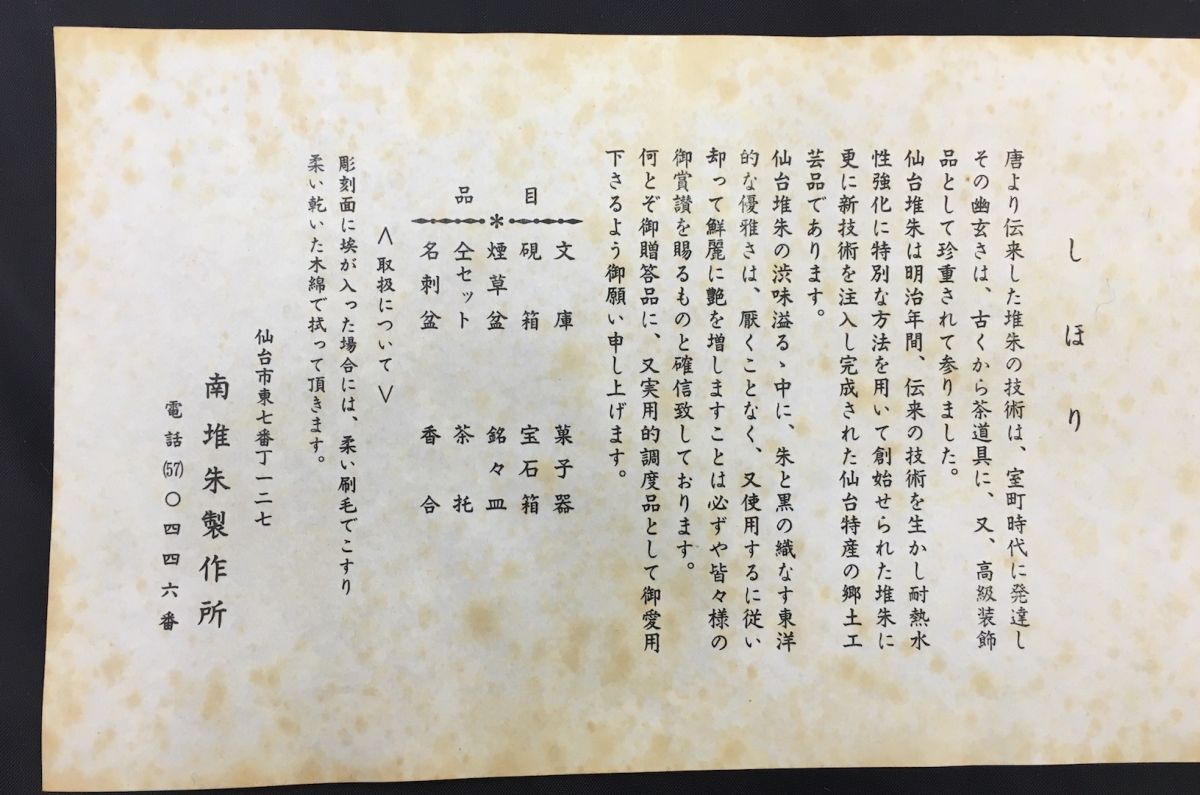 しほり
唐より伝来した堆朱の技術は、室町時代に発達し
その幽玄さは、古くから茶道具に、又、高級装飾
品として珍重されて参りました。
仙台堆朱は明治年間、伝来の技術を生かし耐熱水
性強化に特別な方法を用いて創始せられた堆朱に
更に新技術を注入し完成された仙台特産の郷土工
芸品であります。
仙台堆朱の渋味溢るゝ中に、朱と黒の織なす東洋
的な優雅さは、厭くことなく、又使用するに従い
却って鮮麗に艶を増しますことは必ずや皆々様の
御賞讃を賜るものと確信致しております。
何とぞ御贈答品に、又実用的調度品として御愛用
下さるよう御願い申し上げます。
品目
文庫 菓子器
硯箱 宝石箱
煙草盆 銘々皿
仝セット 茶托
名刺盆 香合
＜取扱について＞
彫刻面に埃が入った場合には、柔い刷毛でこすり
柔い乾いた木綿で拭って頂きます。
仙台市東七番丁一二七
南堆朱製作所
電話(57)〇四四六番